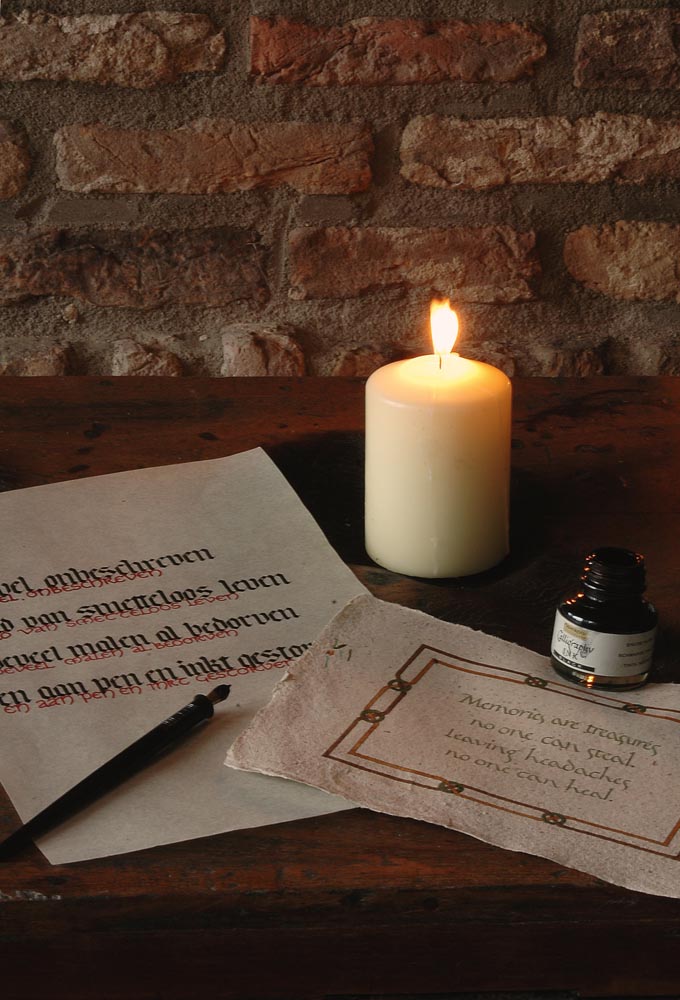 vel onbeschreven
el onbeschreven
d van smetteloos leven
van smetteloos leven
eveel malen al bedorven
eveel malen al bedorven
en aan pen en inkt gestor
en aan pen en inkt gestor
Calligraphy
INK
BLACK
Memories are treasures
no one can steal.
Leaving headaches
no one can heal.